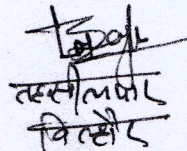 तहसीलदार
बिल्हौर